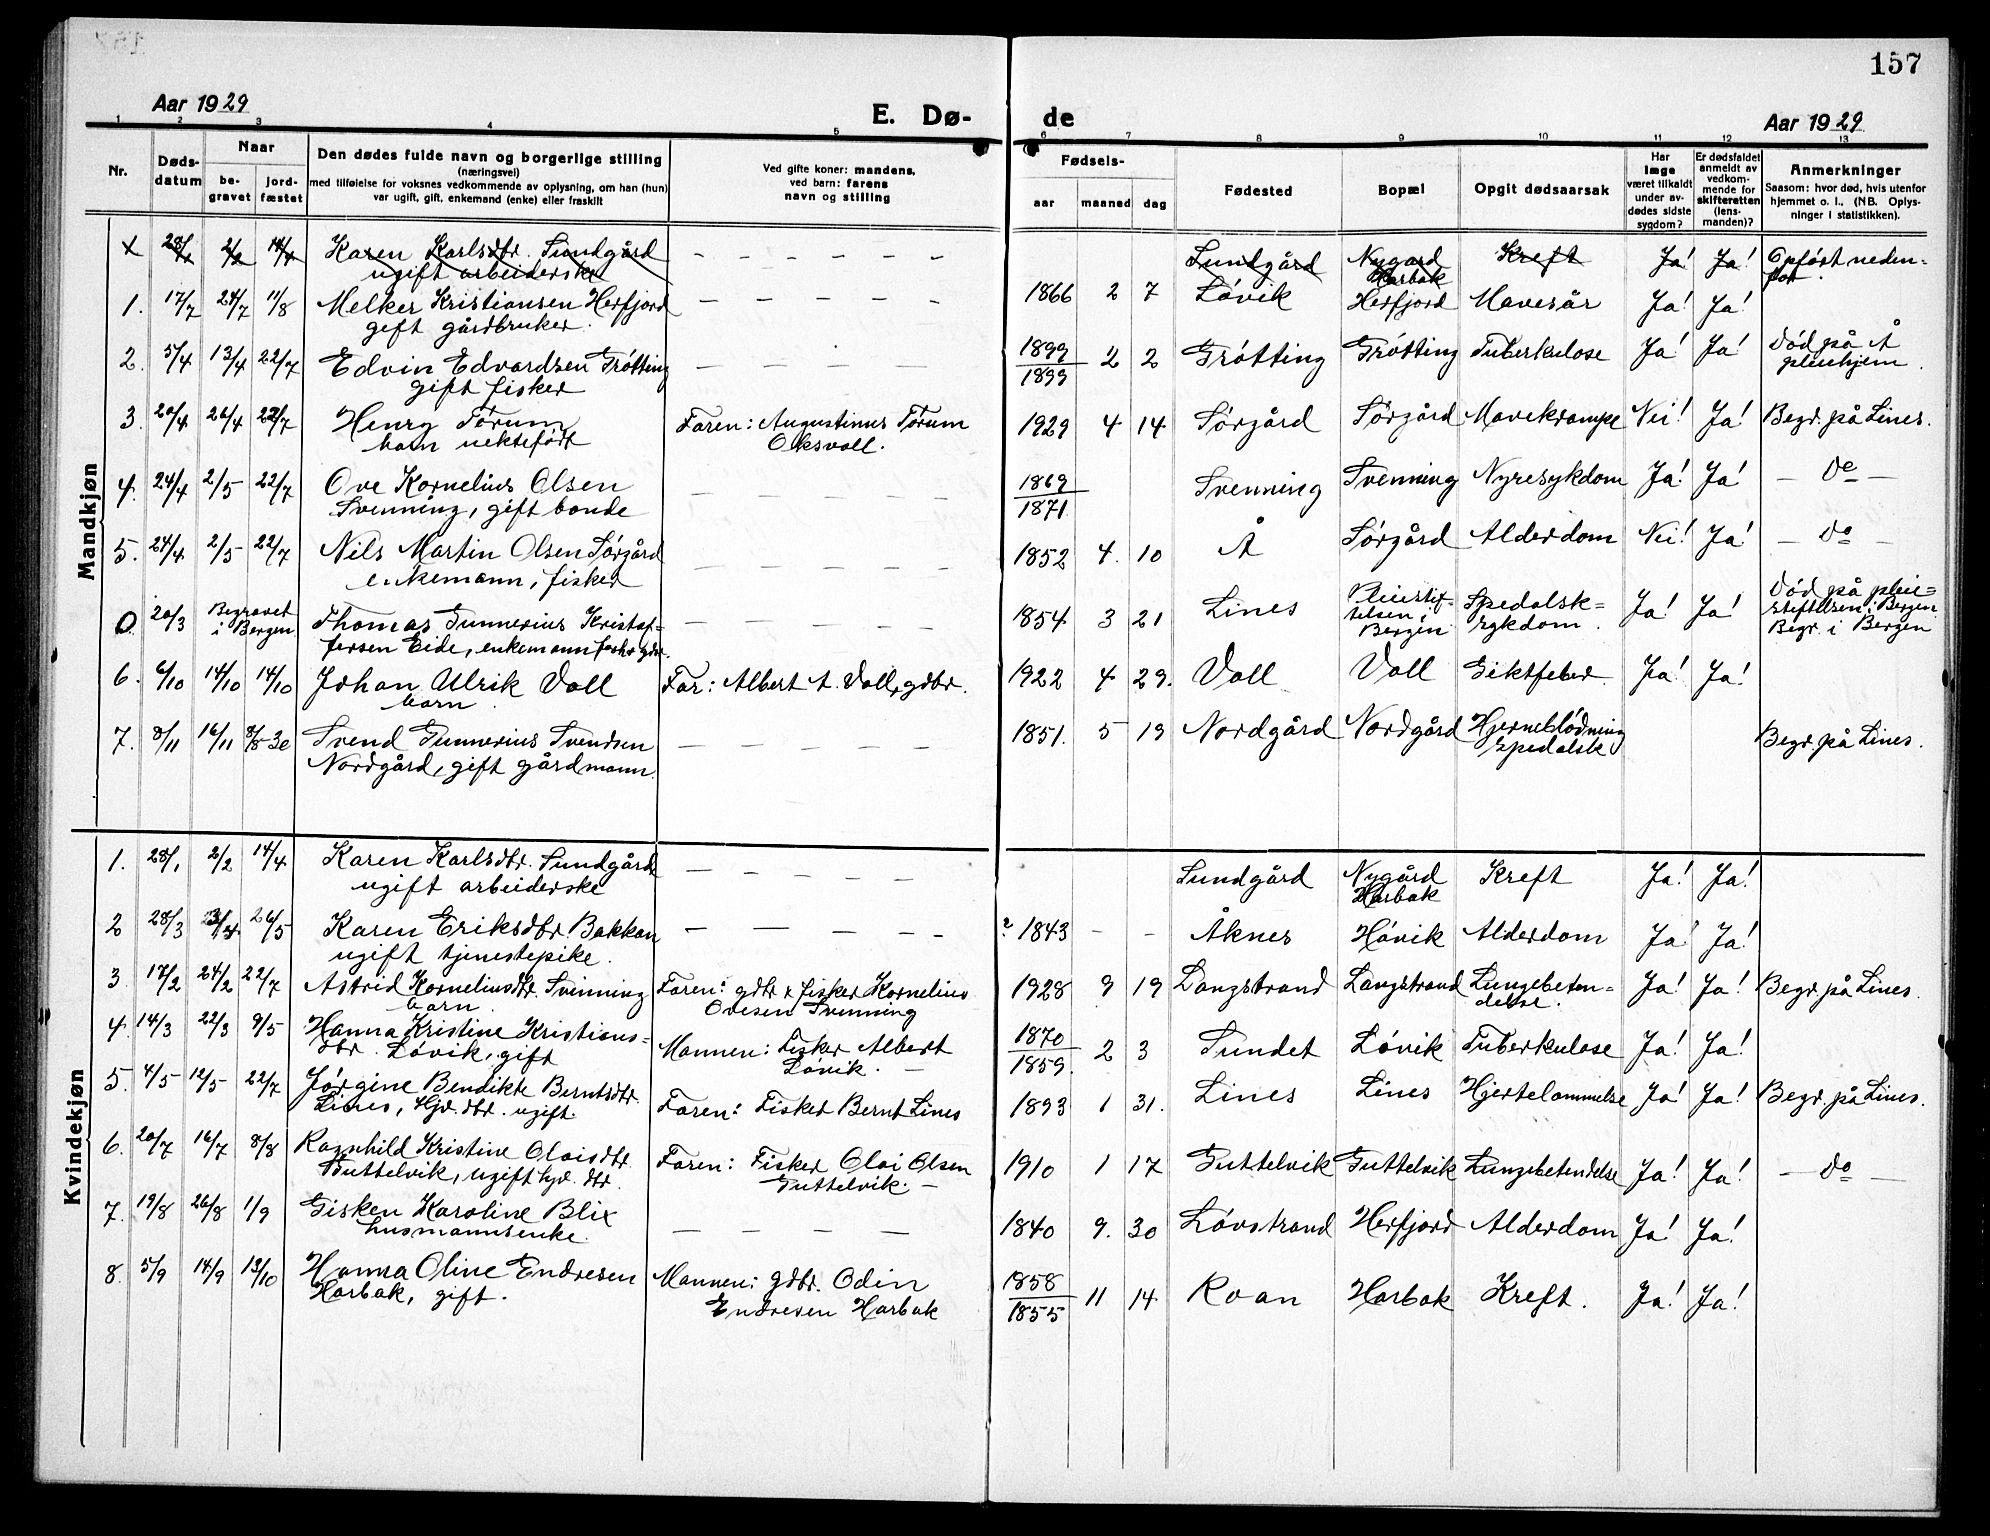 157
Aar 1929 E. Dø- de Aar 1929
1 2 3 4 5 6 7 8 9 10 11 12 13
Nr. Døds-datum Naar be-gravet jord-fæstet Den dødes fulde navn og borgerlige stilling (næringsvei) med tilføielse for voksnes vedkommende av oplysning, om han (hun) var ugift, gift, enkemand (enke) eller fraskilt Ved gifte koner: mandens, ved barn: farens navn og stilling Fødsels- aar maaned dag Fødested Bopæl Opgit dødsaarsak Har læge været tilkaldt under av-dødes sidste sygdom? Er dødsfaldet anmeldt av vedkom-mende for skifteretten (lens-manden)? Anmerkninger Saasom: hvor død, hvis utenfor hjemmet o. l., (NB. Oplys-ninger i statistikken).
Mandkjøn
x 28/1 2/2 14/4 Karen Karlsdtr. Sundgård - - - - - - Sundgård Nygård Kreft Ja! Ja! Opført neden-
ugift arbeiderske Harbak for
1. 17/7 24/7 11/8 Melker Kristiansen Herfjord - - - - - - 1866 2 7 Løvik Herfjord Mavesår Ja! Ja!
gift gårdbruker.
2. 5/4 13/4 22/7 Edvin Edvardsen Grøtting - - - - - 1899 2 2 Grøtting Grøtting Tuberkulose Ja! Ja! Død på Å
gift fisker 1899 pleiehjem.
3. 20/4 26/4 22/7 Henry Tørum Faren: Augustinus Tørum 1929 4 14 Sørgård Sørgård Mavekrampe Nei! Ja! Begr. på Lines.
barn uektefødt Oksvoll.
4. 24/4 2/5 22/7 Ove Kornelius Olsen - - - - - 1869 Svenning Svenning Nyresykdom Ja! Ja! - do -
Svenning, gift bonde 1871
5. 24/4 2/5 22/7 Nils Martin Olsen Sørgård - - - - - 1852 4. 10 Å Sørgård Alderdom Nei! Ja! - do -
enkemann, fisker
0 20/3 Begravet Thomas Tunnerius Kristof- - - - - - - 1854 3 21 Lines Pleiestif- Spedalsk- Ja! Ja! Død på pleie-
i Bergen fersen Eide, enkemann telsen i sykdom. stiftelsen i Bergen
Bergen Begr. i Bergen
6. 6/10 14/10 14/10 Johan Ulrik Voll Far: Albert A. Voll, gdbr. 1922 4 29. Voll Voll Giktfeber Ja! Ja!
barn.
7. 8/11 16/11 8/5-30 Svend Gunnerius Svendsen - - - - - 1851. 5 19 Nordgård Nordgård Hjerneblødning
Nordgård, gift gårdmann. spedalsk Begr. på Lines.
Kvindekjøn
1. 28/1 2/2 14/4 Karen Karlsdtr. Sundgård - - - - - Sundgård Nygård Kreft Ja! Ja!
ugift arbeiderske Harbak
2 28/3 26/5 Karen Eriksdtr Bakkan - - - - - ? 1843 - - Åknes Høvik Alderdom Ja! Ja!
ugift tjenestepike.
3. 17/2 24/2 22/7 Astrid Korneliusdtr. Svenning Faren: gdbr x fisker Kornelius 1928 9 19 Langstrand Langstrand Lungebeten- Ja! Ja! Begr. på Lines.
barn. Ovesen Svenning delse.
4. 14/3 22/3 9/5 Hanna Kristine Kristians- Mannen: Fisker Albert 1870 2 3 Sundet Løvik Tuberkulose Ja! Ja!
dtr. Løvik, gift Løvik. - 1859.
5. 4/5 12/5 22/7 Jørgine Bendikte Berntsdtr. Faren: Fisker Bernt Lines 1893 1 31. Lines Lines Hjertelammelse Ja! Ja! Begr. på Lines.
Lines, hjv. dtr. ugift.
6. 20/7 16/7 8/8 Ragnhild Kristine Olaisdtr. Faren: Fisker Olai Olsen 1910 1 17 Guttelvik Guttelvik Lungebetendelse Ja! Ja! - do -
Guttelvik, ugift hjv. dtr. Guttelvik. -
7. 19/8 26/8 1/9 Gisken Karoline Blix - - - - 1840 9. 30 Løvstrand Herfjord Alderdom Ja! Ja!
husmannsenke.
8. 5/9 14/9 13/10 Hanna Oline Endresen Mannen: gdbr. Odin 1858 11 14 Roan Harbak Kreft. Ja! Ja!
Harbak, gift. Endresen Harbak 1855